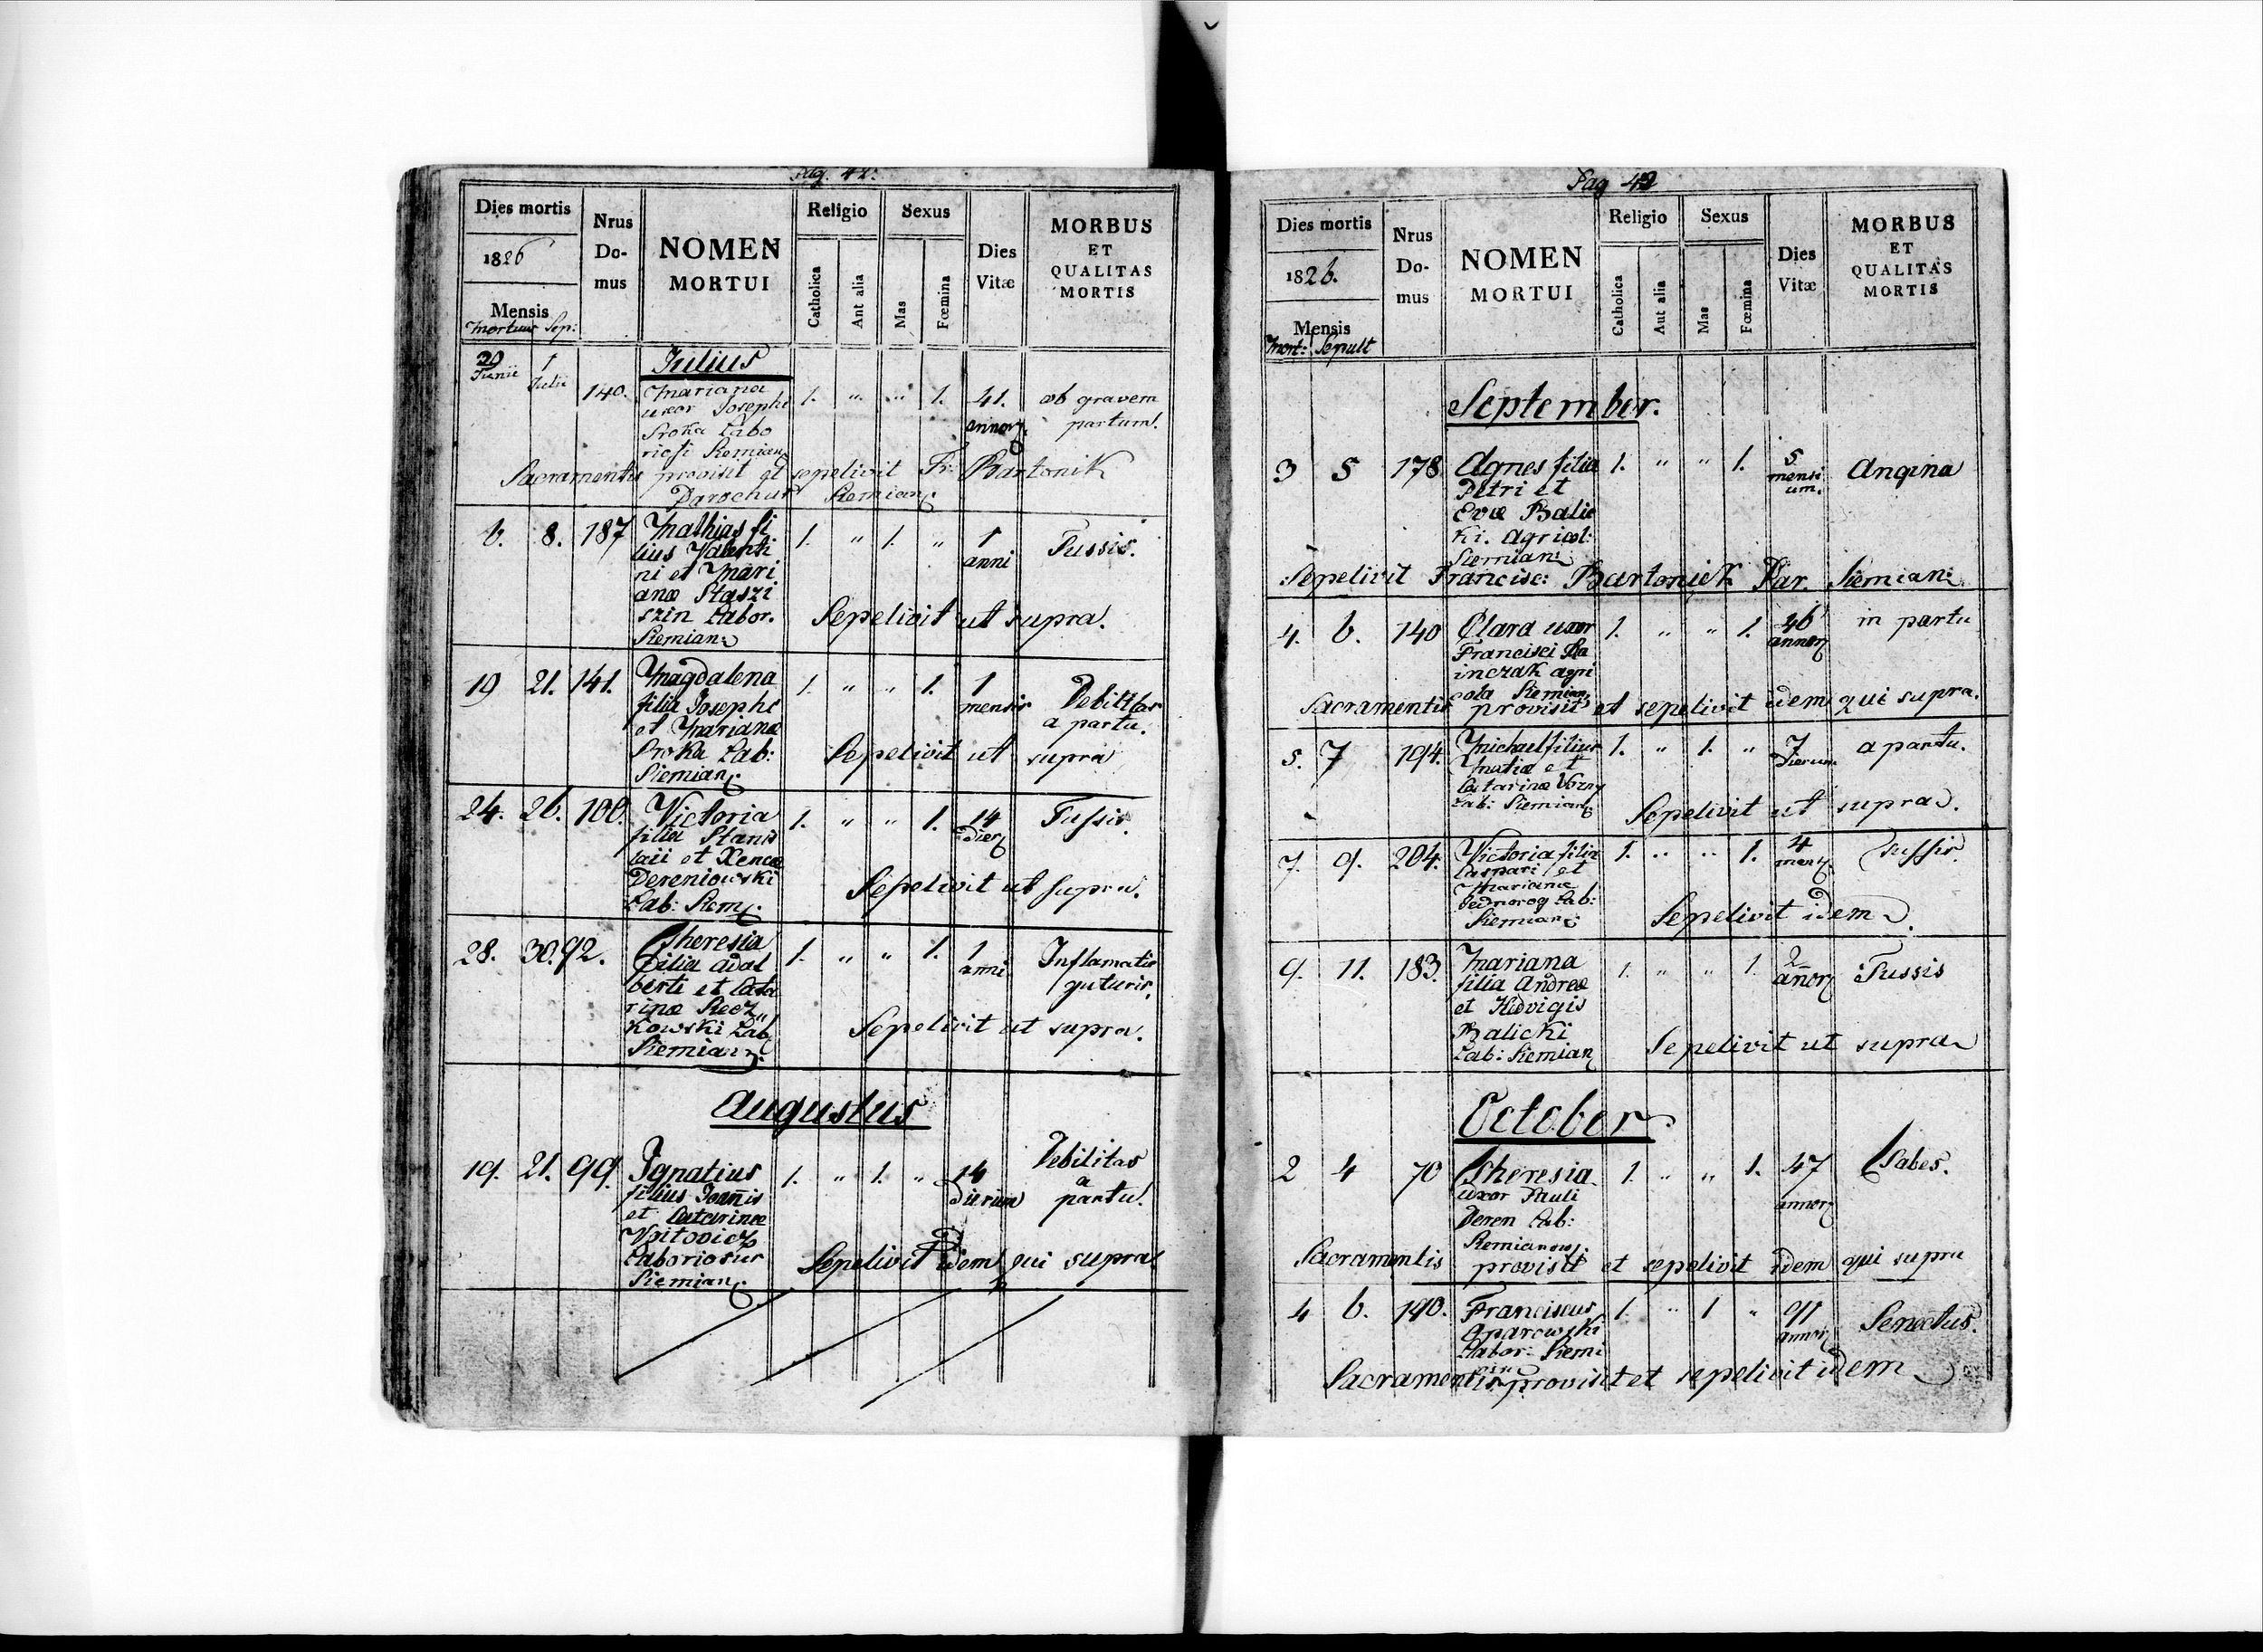 Pag. 42.
Dies mortis
1826
Mensis
Mortuus Sep:
Nrus
Do-
mus
NOMEN
MORTUI
Religio
Catholica
Aut alia
Sexus
Mas
Fœmina
Dies
Vitæ
MORBUS
ET
QUALITAS
MORTIS
Julius
Junii
1
Julii
140.
Mariana
uxor Josephi
Sroka Labo
riosi Siemian:
1. " " 1.
41.
annor.
ob gravem
partum.
Sacramentis provisit et sepelivit Fr: Bartonik
Parochus Siemian:
6. 8. 187
Mathias fi
lius Valenti
ni et Mari
anæ Staszi
szin Labor.
Siemian:
1. " 1. "
1
anni
Tussis.
Sepelivit ut supra.
19 21. 141.
Magdalena
filia Josephi
et Mariana
Sroka Lab:
Siemian:
1. " " 1.
1
mensis
Debilitas
a partu.
Sepelivit ut supra
24. 26. 100.
Victoria
filia Stanis
laii et Xenca
Dereniowski
Lab: Siem:
1. " " 1.
14
dier.
Tussis.
Sepelivit ut supra.
28. 30. 92.
Theresia
filia Adal
berti et Cata
rinæ
kowski Lab
Siemian:
1. " " 1.
1
anni
Inflamatio
guturis.
Sepelivit ut supra.
Augustus
19. 21. 99.
Ignatius
filius Joannis
et Catarinæ
Voitovicz
Laboriosus
Siemian:
1. " 1. "
14
dierum
Debilitas
a
partu.
Sepelivit idem qui supra
Pag 42
Dies mortis
1826.
Mensis
Mort: Sepult
Nrus
Do-
mus
NOMEN
MORTUI
Religio
Catholica
Aut alia
Sexus
Mas
Fœmina
Dies
Vitæ
MORBUS
ET
QUALITAS
MORTIS
September.
3 5 178
Agnes filia
Petri et
Evæ Balic
ki. Agricol:
Siemian:
1. " " 1.
5
mensi
um.
Angina
Sepelivit Francisc: Bartoniek Par. Siemian:
4. 6. 140
Clara uxor
Francisci
inczak agri
cola Siemian:
1. " " 1.
46
annor.
in partu
Sacramentis provisit et sepelivit idem qui supra.
5. 7 194.
Michael filius
Matiæ et
Catarinæ
Lab: Siemian:
1. " 1. "
7
dierum
a partu.
Sepelivit ut supra.
7. 9. 204.
Victoria filia
Caspari et
Marianæ
Jednorog Lab:
Siemian:
1. " " 1.
4
mens.
Tussis.
Sepelivit idem.
9. 11. 183.
Mariana
filia Andreæ
et Hedvigis
Balicki
Lab: Siemian
1. " " 1.
2
annor.
Tussis
Sepelivit ut supra
October
2 4 70
Theresia
uxor Pauli
Deren Lab:
Siemianow:
1. " " 1.
47
annor.
Tabes.
Sacramentis provisit et sepelivit idem qui supra
4 6. 190.
Franciscus
Oparowski
Labor: Siemi
1. " 1 "
annor.
Senectus.
Sacramentis provisit et sepelivit idem